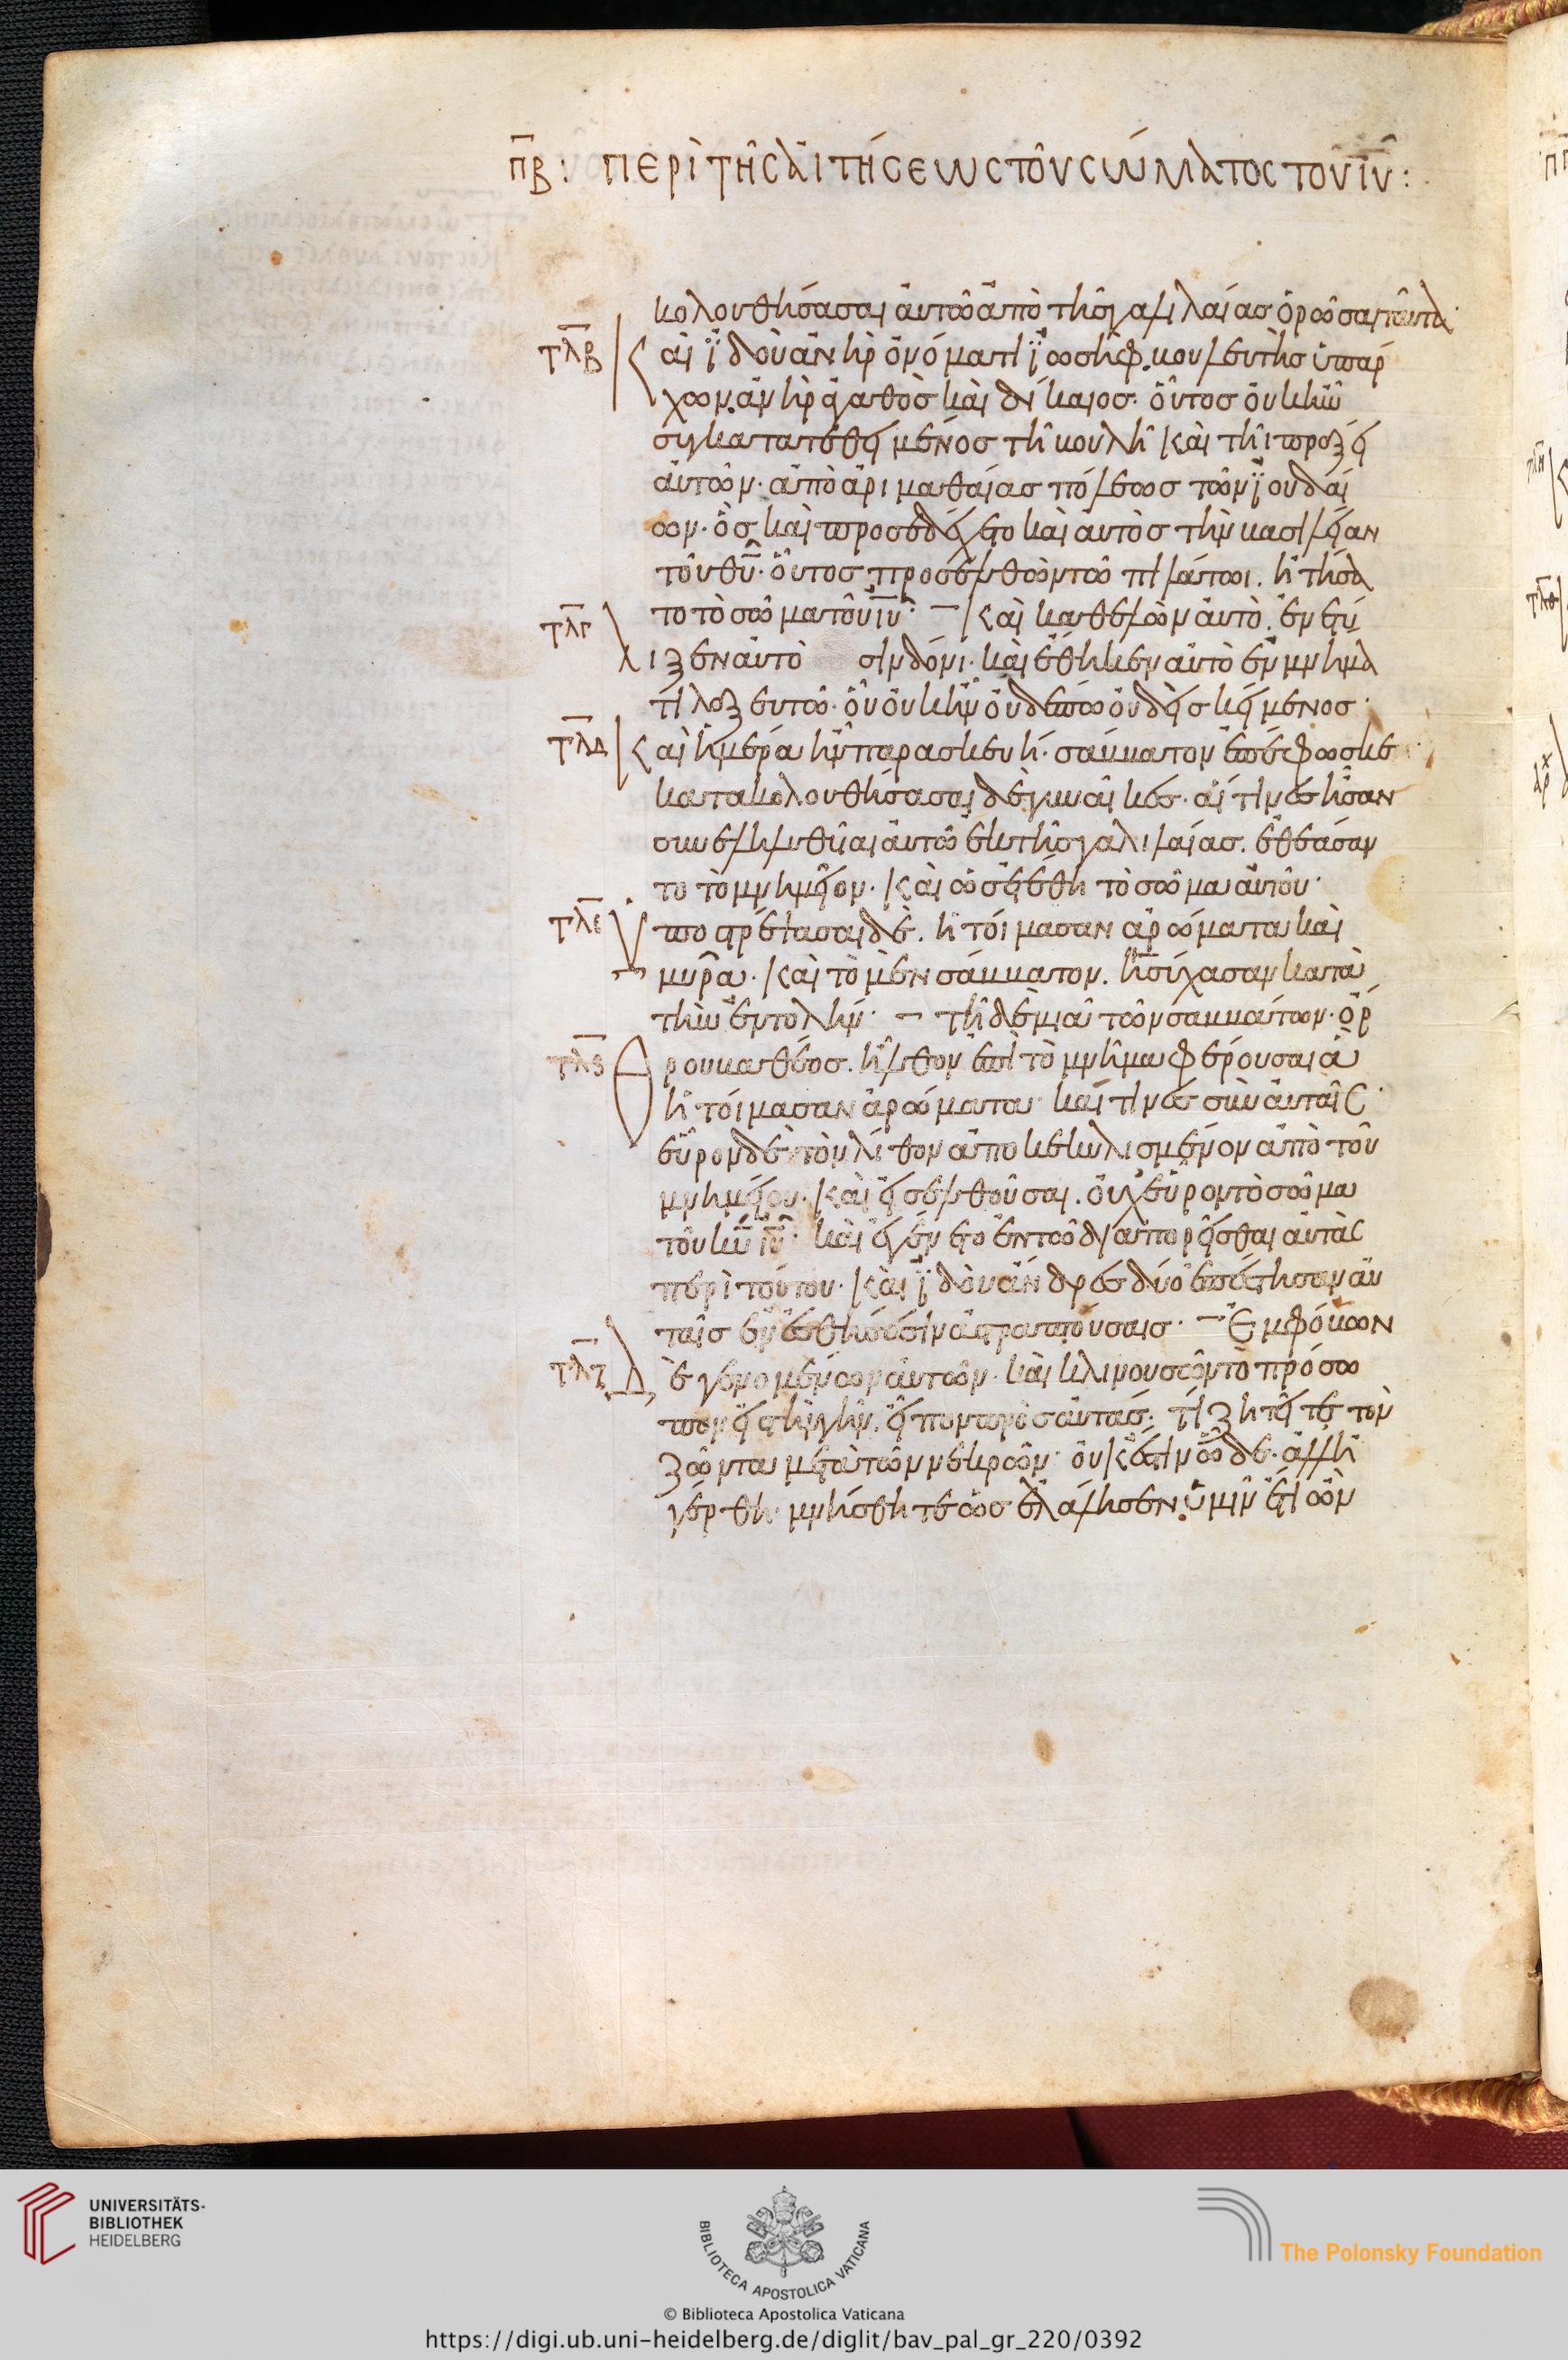 π̅β̅: ΠΕΡῚ ΤΗ͂Σ ἈΙΤΉΣΕΩΣ ΤΟΥ͂ ΣΏΜΑΤΟΣ ΤΟΥ͂ ΙΥ͂:
κολουθήσασαι ἀυτῶ ἀπὸ τῆς γαλιλαίας ὁρῶσαι ταῦτα·
τλβ Κ αὶ ἰδοὺ ἀνὴρ ὀνόματι ἰωσὴφ. βουλευτὴς ὑπάρ
χων. ἀνὴρ ἀγαθὸς καὶ δίκαιος· οὗτος οὐκ ἦν
συγκατατεθειμένος τῆ βουλῆ καὶ τῆι πράξει
ἀυτῶν· ἀπὸ ἀριμαθαίας πόλεως τῶν ἰουδαί
ων· ὃς καὶ προσεδέχετο καὶ ἀυτὸς τὴν βασιλείαν
τοῦ θῡ· οὗτος προσελθὼν τῶ πιλάτωι. ἠτήσα
τλγ το τὸ σῶμα τοῦ ιῡ· Καὶ καθελὼν ἀυτὸ. ἐνετύ
λιξεν ἀυτὸ σινδόνι· καὶ ἔθηκεν ἀυτὸ ἐν μνήμα
τι λαξευτῶ· οὗ οὐκ ἦν οὐδέπω οὐδεὶς κείμενος·
τλδ Κ αὶ ἡμέρα ἦν παρασκευή· σάββατον ἐπέφωσκε
κατακολουθήσασαι δὲ γυναῖκες· αἵτινες ἦσαν
συνεληλυθῦαι ἀυτῶ ἐκ τῆς γαλιλαίας. ἐθεάσαν
το τὸ μνημεῖον· Καὶ ὡς ἐτέθη τὸ σῶμα ἀυτοῦ·
τλε Υ ποστρέψασαι δὲ. ἡτοίμασαν ἀρώματα καὶ
μῦρα· Καὶ τὸ μὲν σάββατον. ἡσύχασαν κατὰ
τὴν ἐντολήν· τῆ δὲ μιᾶ τῶν σαββάτων· ὄρ
τλϛ θρου βαθέος. ἦλθον ἐπὶ τὸ μνῆμα φέρουσαι ἃ
ἡτοίμασαν ἀρώματα· καί τινες σὺν ἀυταῖς·
εὗρον δὲ τὸν λίθον ἀποκεκυλισμένον ἀπὸ τοῦ
μνημείου· Καὶ εἰσελθοῦσαι. οὐχ εὗρον τὸ σῶμα
τοῦ κῡ ιῡ· καὶ ἐγένετο ἐν τῶ διαπορεῖσθαι ἀυτὰς
περὶ τούτου· Καὶ ἰδοὺ ἄνδρες δύο ἐπέστησαν ἀυ
ταῖς ἐν ἐσθήσεσιν ἀστραπτούσαις· Ἐμφόβων
τλζ δ ὲ γενομένων ἀυτῶν· καὶ κλινουσῶν τὸ πρόσω
πον εἰς τὴν γῆν. εἶπον πρὸς ἀυτάς. τί ζητεῖτε τὸν
ζῶντα μετὰ τῶν νεκρῶν· οὐκ ἔστιν ὧδε· ἀλλ' ἠ
γέρθη· μνήσθητε ὡς ἐλάλησεν ὑμῖν ἔτι ὢν
UNIVERSITÄTS-
BIBLIOTHEK
HEIDELBERG
BIBLIOTECA APOSTOLICA VATICANA
The Polonsky Foundation
© Biblioteca Apostolica Vaticana
https://digi.ub.uni-heidelberg.de/diglit/bav_pal_gr_220/0392